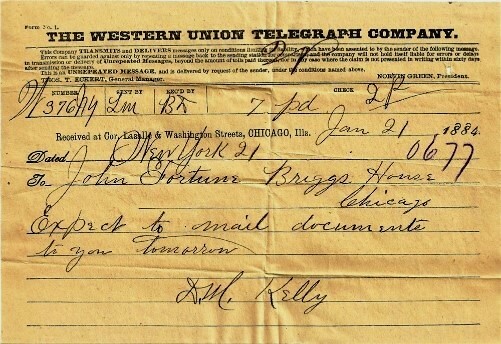 Form No. 1.
THE WESTERN UNION TELEGRAPH COMPANY.
This Company TRANSMITS and DELIVERS messages only on conditions limiting its liability, which have been assented to by the sender of the following message.
Errors can be guarded against only by repeating a message back to the sending station for comparison, and the company will not hold itself liable for errors or delays
in transmission or delivery of Unrepeated Messages, beyond the amount of tolls paid thereon, nor in any case where the claim is not presented in writing within sixty days
after sending the message.
This is an UNREPEATED MESSAGE, and is delivered by request of the sender, under the conditions named above.
THOS. T. ECKERT, General Manager. NORVIN GREEN, President.
NUMBER SENT BY REC'D BY CHECK
7 pd
Received at Cor. Lasalle & Washington Streets, CHICAGO, Ills. Jan 21 1884
Dated New York 21
0677
To John Fortune Briggs House
Chicago
Expect to mail documents
to you tomorrow
D.M. Kelly